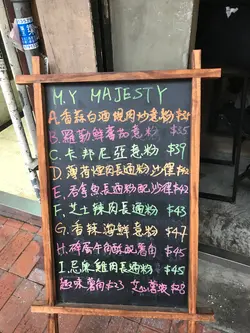 M.Y MAJESTY
A.香蒜白酒燒肉炒意粉
B.羅勒鮮蕃茄意粉 $35
C.卡邦尼亞意粉 $39
D.薄荷煙肉長通粉沙律 $42
E.吞拿魚長通粉配沙律 $42
F.芝士辣肉長通粉 $43
G.香辣海鮮意粉 $47
H.碎磨牛肉酥配薯肉 $45
I.忌廉雞肉長通粉 $45
趣味薯肉 $23 芝士薯 $28